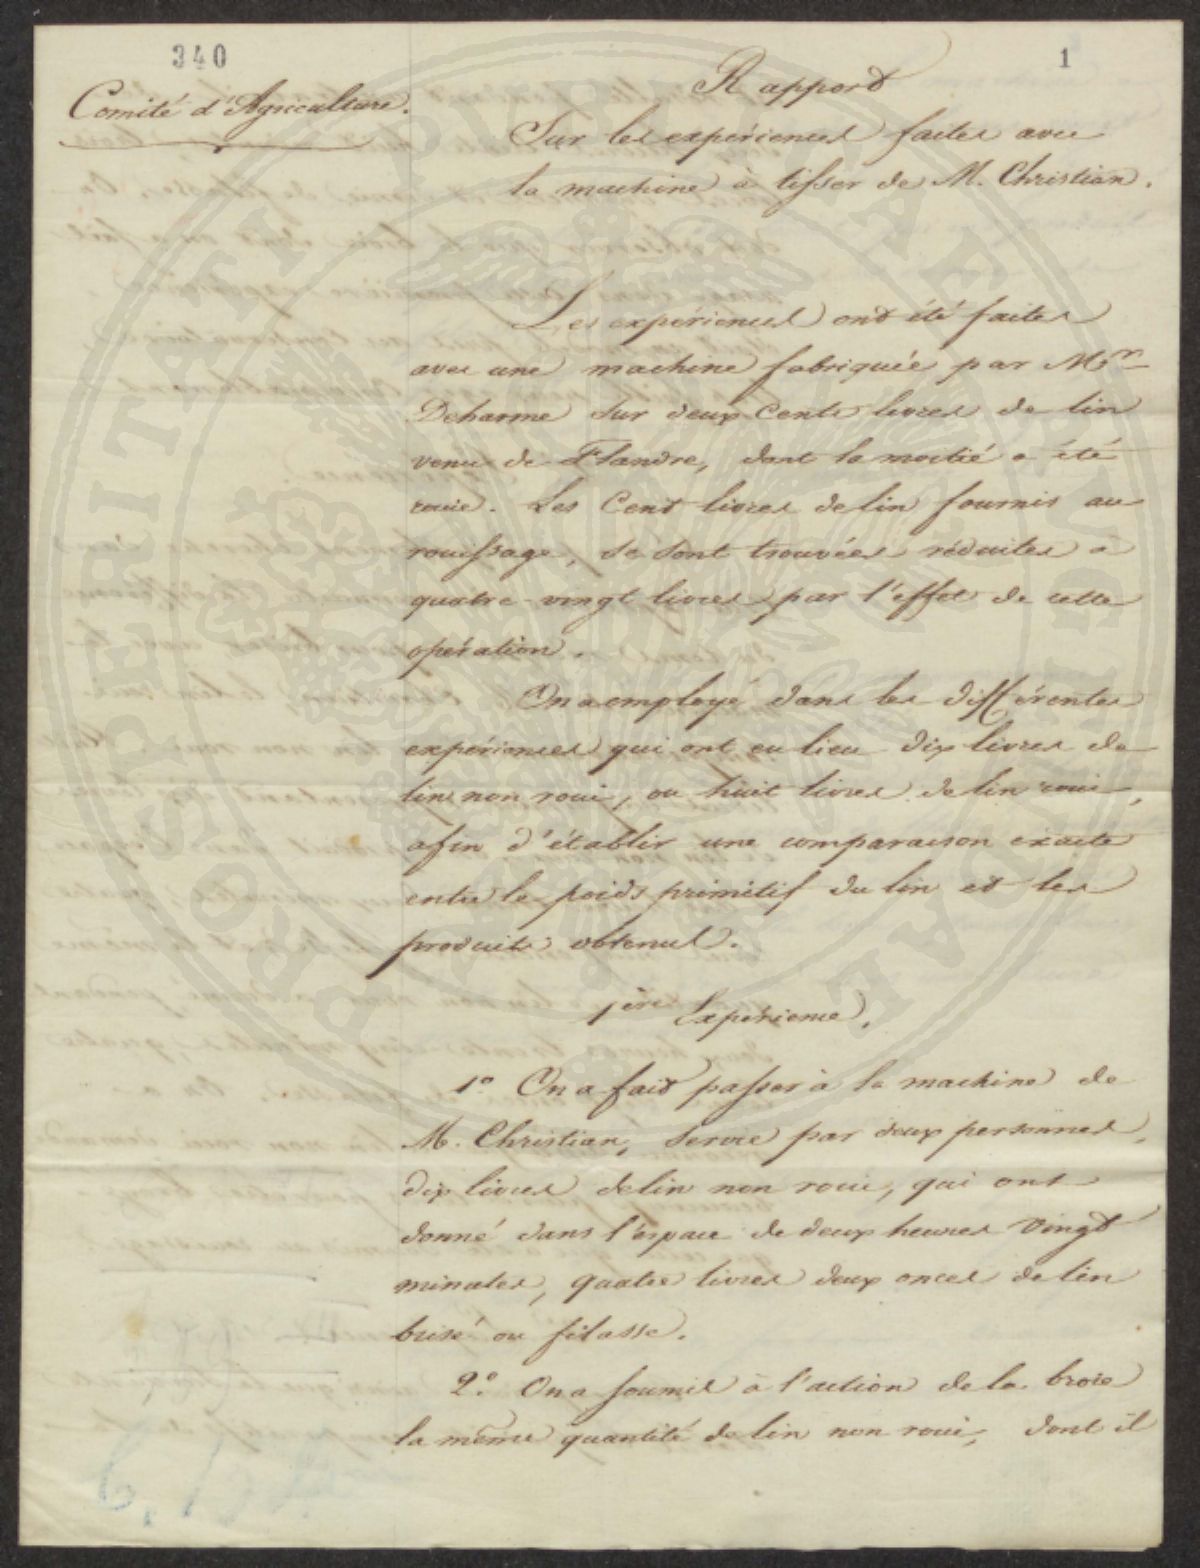 340
1
Comité d'Agriculture.
Rapport
Sur les expériences faites avec
la machine à tisser de M. Christian.
Les expériences ont été faites
avec une machine fabriquée par Mr
Deharme sur deux Cents livres de lin
venu de Flandre, dont la moitié a été
rouie. Les Cent livres de lin fournis au
rouissage, se sont trouvées réduites à
quatre vingt livres par l'effet de cette
opération.
On a employé dans les différentes
expériences qui ont eu lieu dix livres de
lin non roui, ou huit livres de lin roui,
afin d'établir une comparaison exacte
entre le poids primitif du lin et les
produits obtenus.
1ère Expérience.
1º On a fait passer à la machine de
M. Christian, servie par deux personnes,
dix livres de lin non roui, qui ont
donné dans l'espace de deux heures vingt
minutes, quatre livres deux onces de lin
brisé ou filasse.
2º On a soumis à l'action de la broie
la même quantité de lin non roui, dont il
PROSPERITATI PVBLICAE AVGENDAE